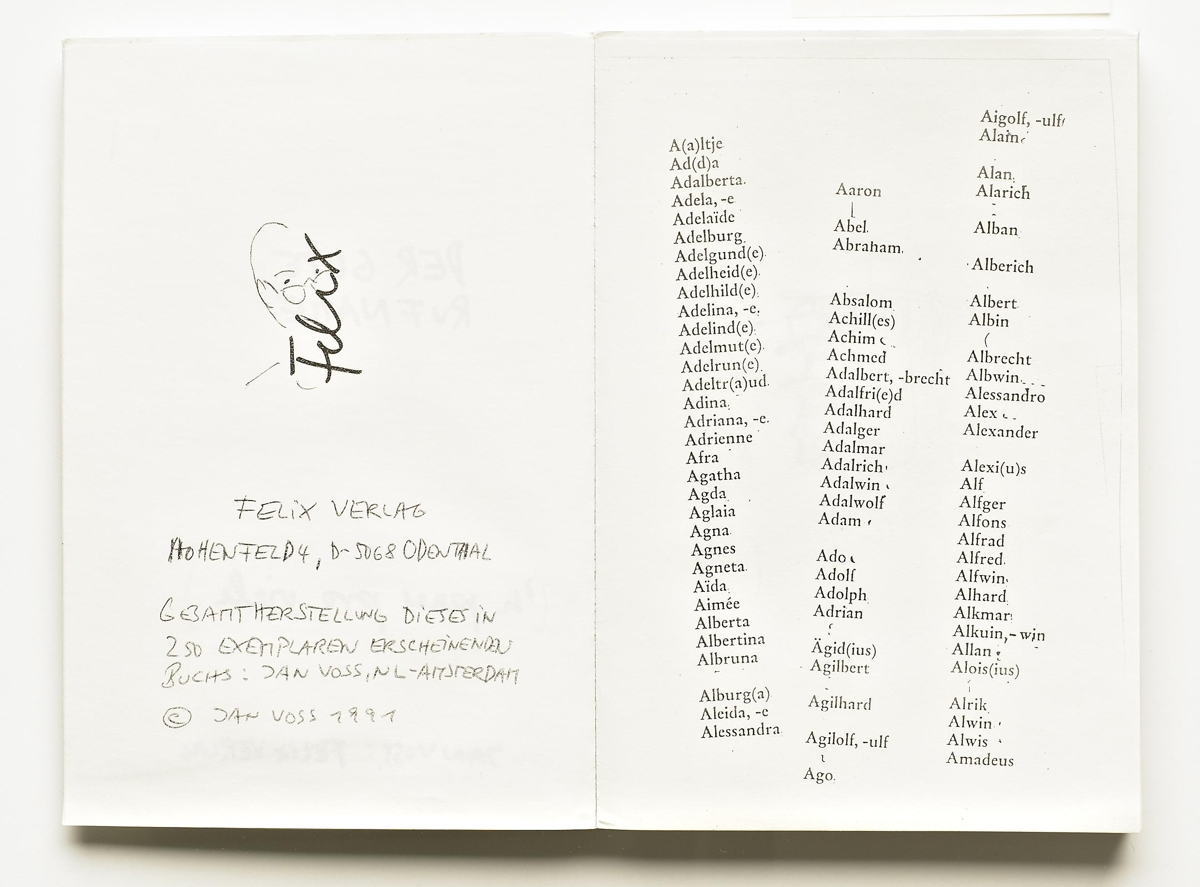 Felix
FELIX VERLAG
HOHENFELD 4, D-5068 ODENTHAL
GESAMTHERSTELLUNG DIESES IN
250 EXEMPLAREN ERSCHEINENDEN
BUCHS: JAN VOSS, NL-AMSTERDAM
© JAN VOSS 1991
A(a)ltje
Ad(d)a
Adalberta
Adela, -e
Adelaïde
Adelburg
Adelgund(e)
Adelheid(e)
Adelhild(e)
Adelina, -e
Adelind(e)
Adelmut(e)
Adelrun(e)
Adeltr(a)ud
Adina
Adriana, -e
Adrienne
Afra
Agatha
Agda
Aglaia
Agna
Agnes
Agneta
Aïda
Aimée
Alberta
Albertina
Albruna
Alburg(a)
Aleida, -e
Alessandra
Aaron
Abel
Abraham
Absalom
Achill(es)
Achim
Achmed
Adalbert, -brecht
Adalfri(e)d
Adalhard
Adalger
Adalmar
Adalrich
Adalwin
Adalwolf
Adam
Ado
Adolf
Adolph
Adrian
Ägid(ius)
Agilbert
Agilhard
Agilolf, -ulf
Ago
Aigolf, -ulf
Alain
Alan
Alarich
Alban
Alberich
Albert
Albin
Albrecht
Albwin
Alessandro
Alex
Alexander
Alexi(u)s
Alf
Alfger
Alfons
Alfrad
Alfred
Alfwin
Alhard
Alkmar
Alkuin, -win
Allan
Alois(ius)
Alrik
Alwin
Alwis
Amadeus